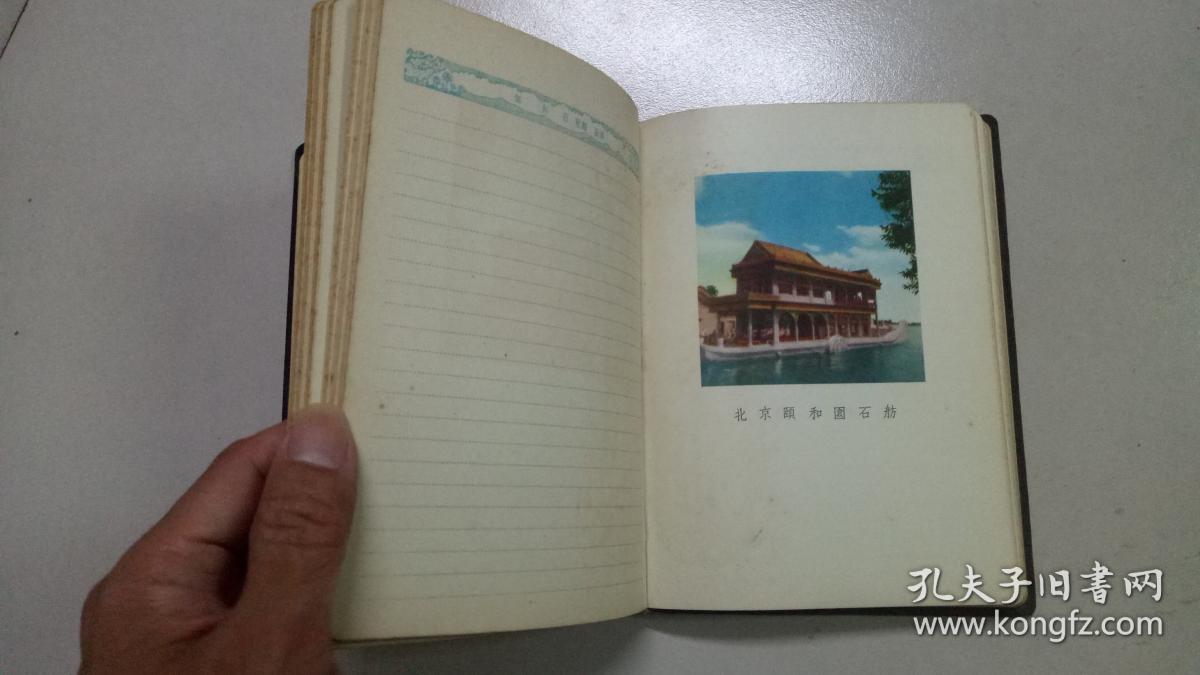 北京頤和园石舫
孔夫子旧书网
www.kongfz.com